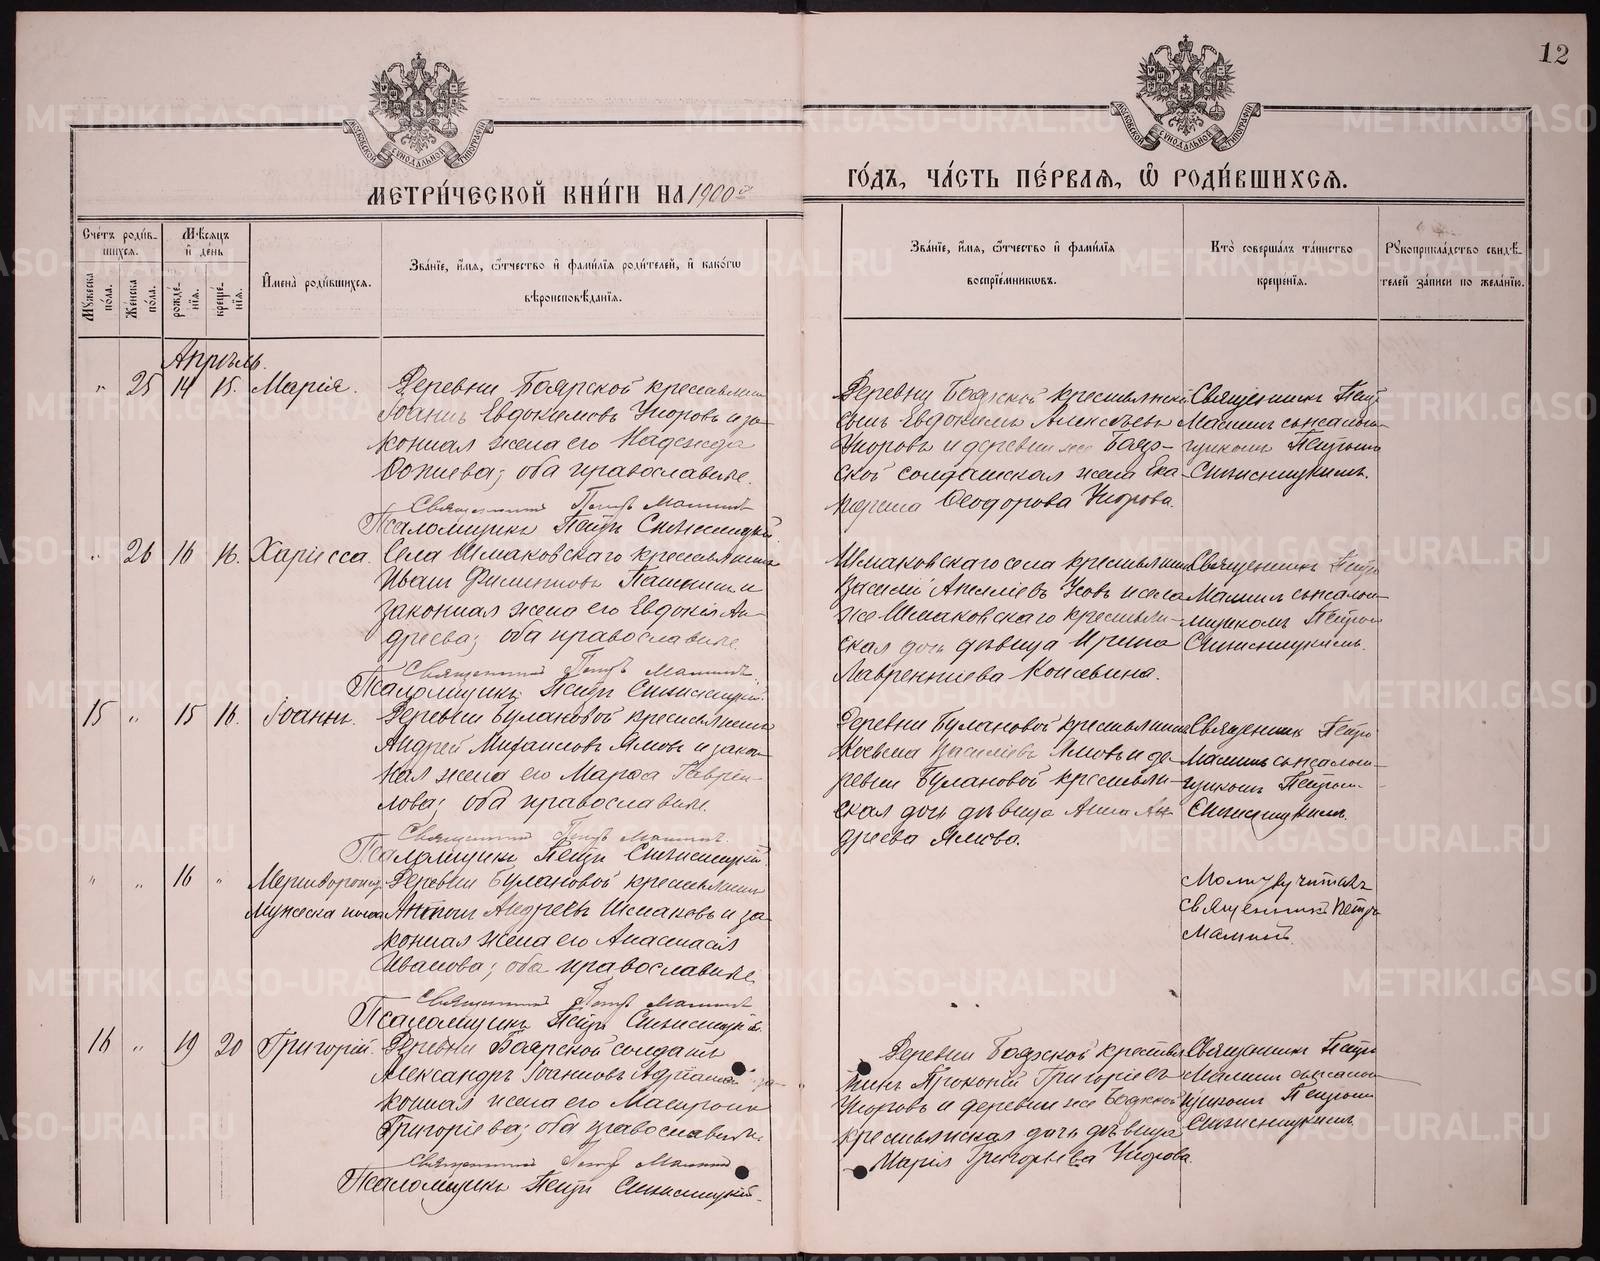 12
МЕТРИ́ЧЕСКОЙ КНИ́ГИ НА 1900й
ГО́ДЪ, ЧА́СТЬ ПЕ́РВАЯ, Ѽ РОДИ́ВШИХСЯ.
МОСКОВСКОЙ СУНОДАЛЬНОЙ ТИПОГРАФІИ
МОСКОВСКОЙ СУНОДАЛЬНОЙ ТИПОГРАФІИ
Сче́тъ роди́вшихся.
Мꙋжеска по́ла.
Же́нска по́ла.
Мѣ́сяцъ и҆ де́нь
рожде́нїя.
креще́нїя.
И҆мена̀ роди́вшихся.
Зва́нїе, и҆́мя, ѻ҆́тчество и҆ фами́лїя роди́телей, и҆ како́гѡ вѣроисповѣ́данїя.
Зва́нїе, и҆́мя, ѻ҆́тчество и҆ фами́лїя воспрїе́мникѡвъ.
Кто̀ соверша́лъ та́инство креще́нїя.
Рꙋкоприкла́дство свидѣ́телей за́писи по жела́нїю.
Апрѣль.
" 25 14 15. Марія.
Деревни Боярской крестьянин
Іоаннъ Евдокимовъ Упоровъ и за-
конная жена его Надежда
оба православные.
Священникъ Петръ Маминъ
Псаломщикъ Петръ
Деревни Боярской крестьянскій
сынъ Евдокимъ Алексѣевъ
Упоровъ и деревни же Бояр-
ской солдатская жена Ека-
терина Ѳеодорова Упорова.
Священникъ Петръ
Маминъ съ псалом-
щикомъ Петромъ
" 26 16 16. Харисса.
Села Шмаковскаго крестьянинъ
Иванъ Филипповъ и
законная жена его Евдокія Ан-
дреева; оба православные.
Священникъ Петръ Маминъ.
Псаломщикъ Петръ
Шмаковскаго села крестьянинъ
Василій и села
же Шмаковскаго крестьян-
ская дочь дѣвица Ирина
Лаврентіева
Священникъ Петръ
Маминъ съ псалом-
щикомъ Петромъ
15 " 15 16. Іоаннъ.
Деревни Булановой крестьянинъ
Андрей Михаиловъ Ямовъ и закон-
ная жена его Марѳа Гаврии-
лова; оба православные.
Священникъ Петръ Маминъ.
Псаломщикъ Петръ
Деревни Булановой крестьянинъ
Косьма Васильевъ Ямовъ и де-
ревни Булановой крестьян-
ская дочь дѣвица Анна Ан-
дреева Ямова.
Священникъ Петръ
Маминъ съ псалом-
щикомъ Петромъ
" " 16 " Мертворожд.
Мужеска пола
Деревни Булановой крестьянинъ
Антонъ Андреевъ Шмаковъ и за-
конная жена его Анастасія
Иванова; оба православные.
Священникъ Петръ Маминъ
Псаломщикъ Петръ
Молитву читалъ
священникъ Петръ
Маминъ.
16 " 19 20 Григорій.
Деревни Боярской солдатъ
Александръ Іоанновъ за-
конная жена его Матрона
Григоріева; оба православные.
Священникъ Петръ Маминъ
Псаломщикъ Петръ
Деревни Боярской крестья-
нинъ Прокопій Григоріевъ
Упоровъ и деревни же Боярской
крестьянская дочь дѣвица
Марія Григорьева Упорова.
Священникъ Петръ
Маминъ съ псалом-
щикомъ Петромъ
METRIKI.GASO-URAL.RU